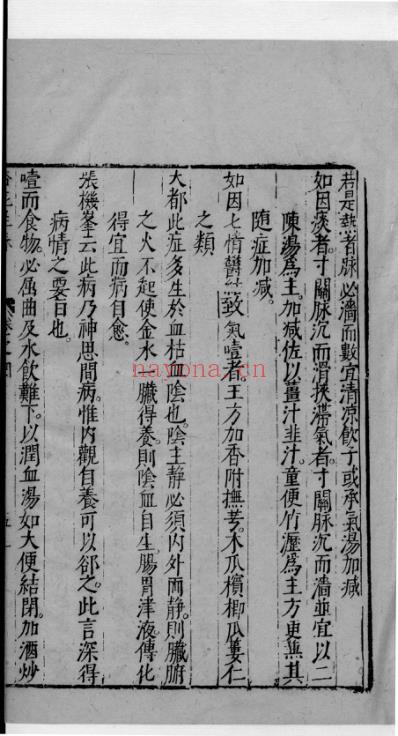 若是熱者脉必濇而數宜清凉飲子或承氣湯加減
如因痰者寸關脉沉而滑挾滯氣者寸關脉沉而濇並宜以二
陳湯爲主加減佐以薑汁韭汁童便竹瀝爲主方更無其
隨症加減
如因七情鬱 致氣噎者王方加香附撫芎木瓜檳榔瓜蔞仁
之類
大都此症多生於血枯血陰也陰主靜必須内外而靜則臟腑
之火不起使金水二臟得養則陰血自生腸胃津液傳化
得宜而病自愈
張機峯云此病乃神思間病惟内觀自養可以郤之此言深得
病情之要旨也
噎而食物必屈曲及水飲難下以潤血湯如大便結閉加酒炒
nayona.cn